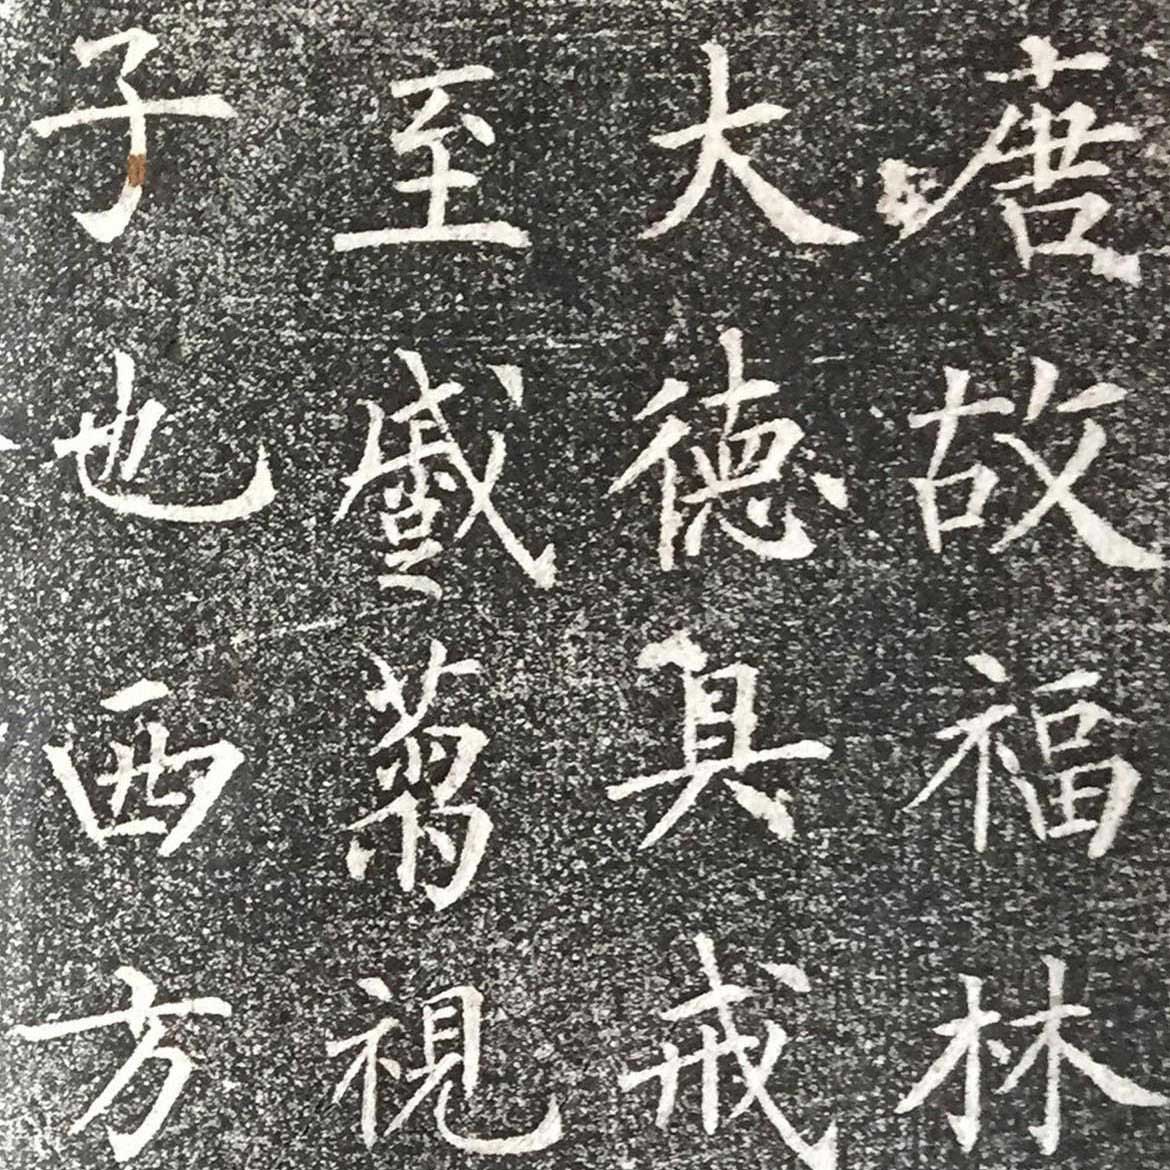 唐故福林
大德具戒
至視
子也西方